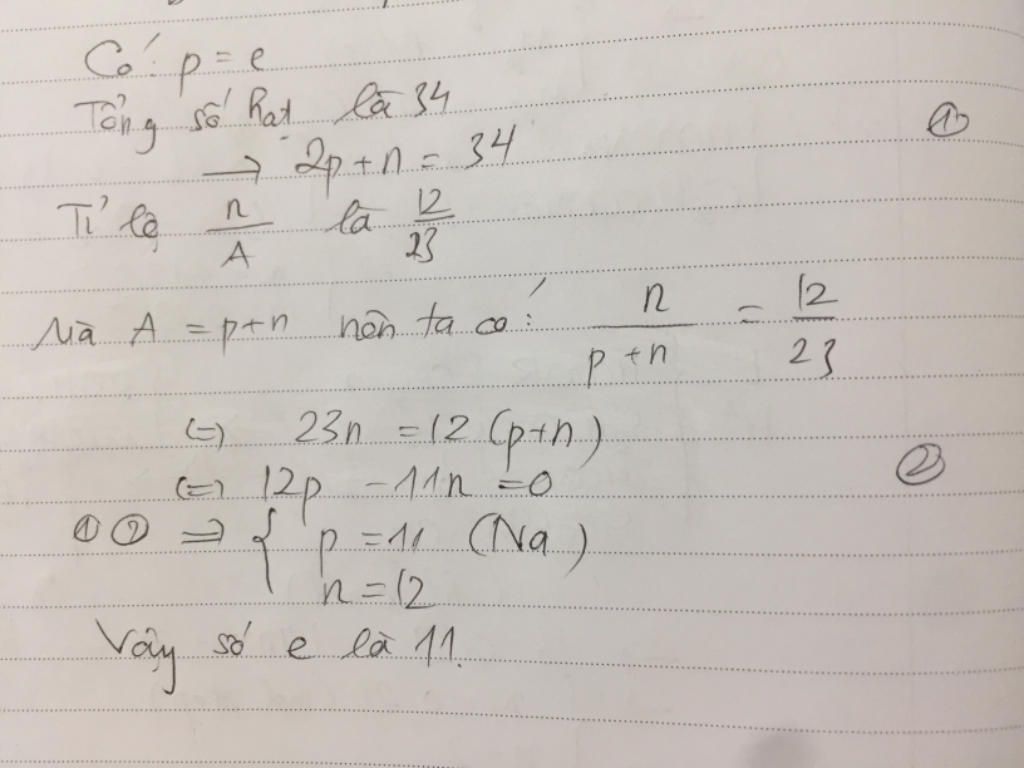 Có: p = e
Tổng số hạt là 34
→ 2p + n = 34 ①
Tỉ lệ n/A là 12/23
Mà A = p+n nên ta có: n/(p+n) = 12/23
(=) 23n = 12 (p+n)
(=) 12p - 11n = 0 ②
① ② ⇒ { p = 11 (Na)
n = 12
Vậy số e là 11.